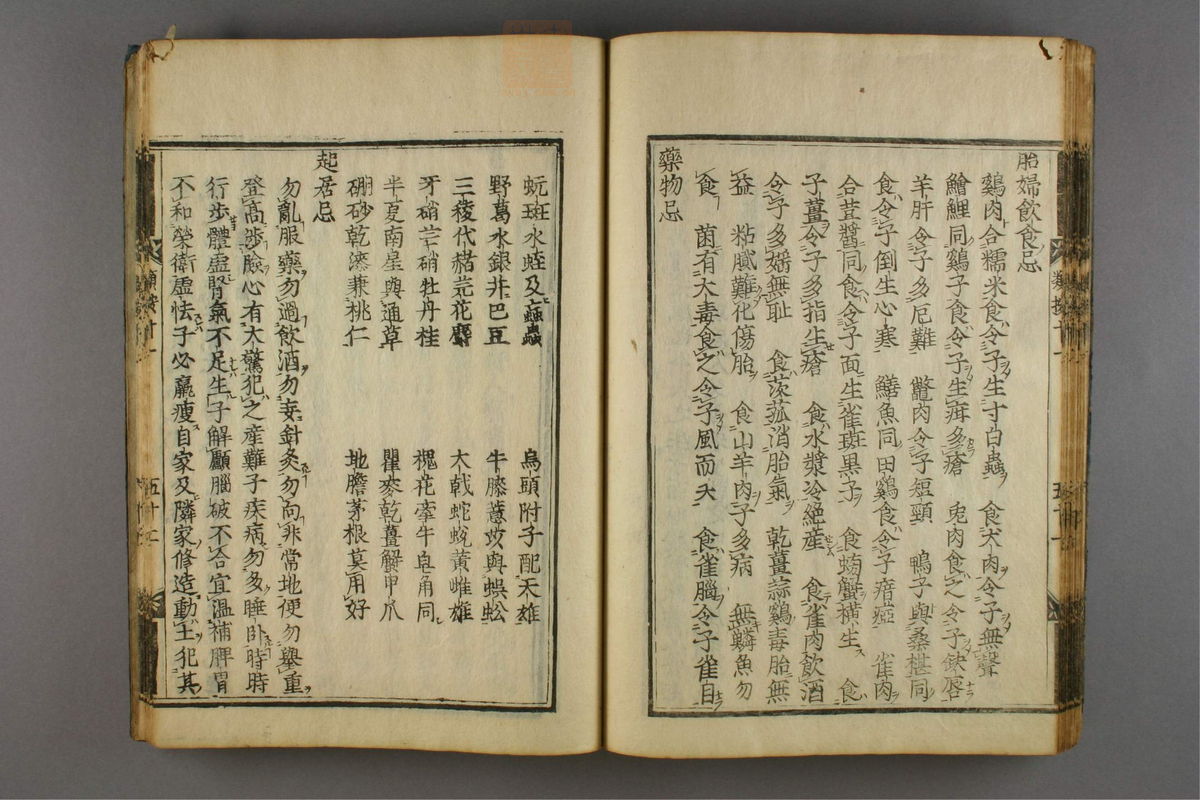 胎婦飲食忌
鷄肉合糯米食令子生寸白蟲 食犬肉令子無聲
鱠鯉同鷄子食令子生疳多瘡 兎肉食之令子缺唇
羊肝令子多厄難 鼈肉令子短頸 鴨子與桑椹同
食令子倒生心寒 鱔魚同田鷄食令子瘖瘂 雀肉
合荳醬同食令子面生雀斑黑子 食螃蟹橫生 食
子薑令子多指生瘡 食水漿冷絶産 食雀肉飲酒
令子多婬無耻 食茨菰消胎氣 乾薑蒜鷄毒胎無
益 粘膩難化傷胎 食山羊肉子多病 無鱗魚勿
食 菌有大毒食之令子風而夭 食雀腦令子雀目
藥物忌
蚖斑水蛭及蝱蟲 烏頭附子配天雄
野葛水銀并巴豆 牛膝薏苡與蜈蚣
三稜代赭芫花麝 大戟蛇蛻黃雌雄
牙硝芒硝牡丹桂 槐花牽牛皁角同
半夏南星與通草 瞿麥乾薑蟹甲爪
硇砂乾漆兼桃仁 地膽茅根莫用好
起居忌
勿亂服藥勿過飲酒勿妄針灸勿向非常地便勿擧重
登高涉險心有大驚犯之産難子疾病勿多睡臥時時
行步體虛腎氣不足生子解顱腦破不合宜溫補脾胃
不和榮衛虛怯子必羸瘦自家及隣家修造動土犯其
類按十一
五十二